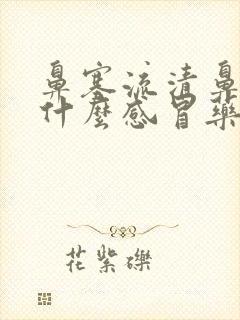 鼻塞流清鼻
什麼感冒藥
花紫礫